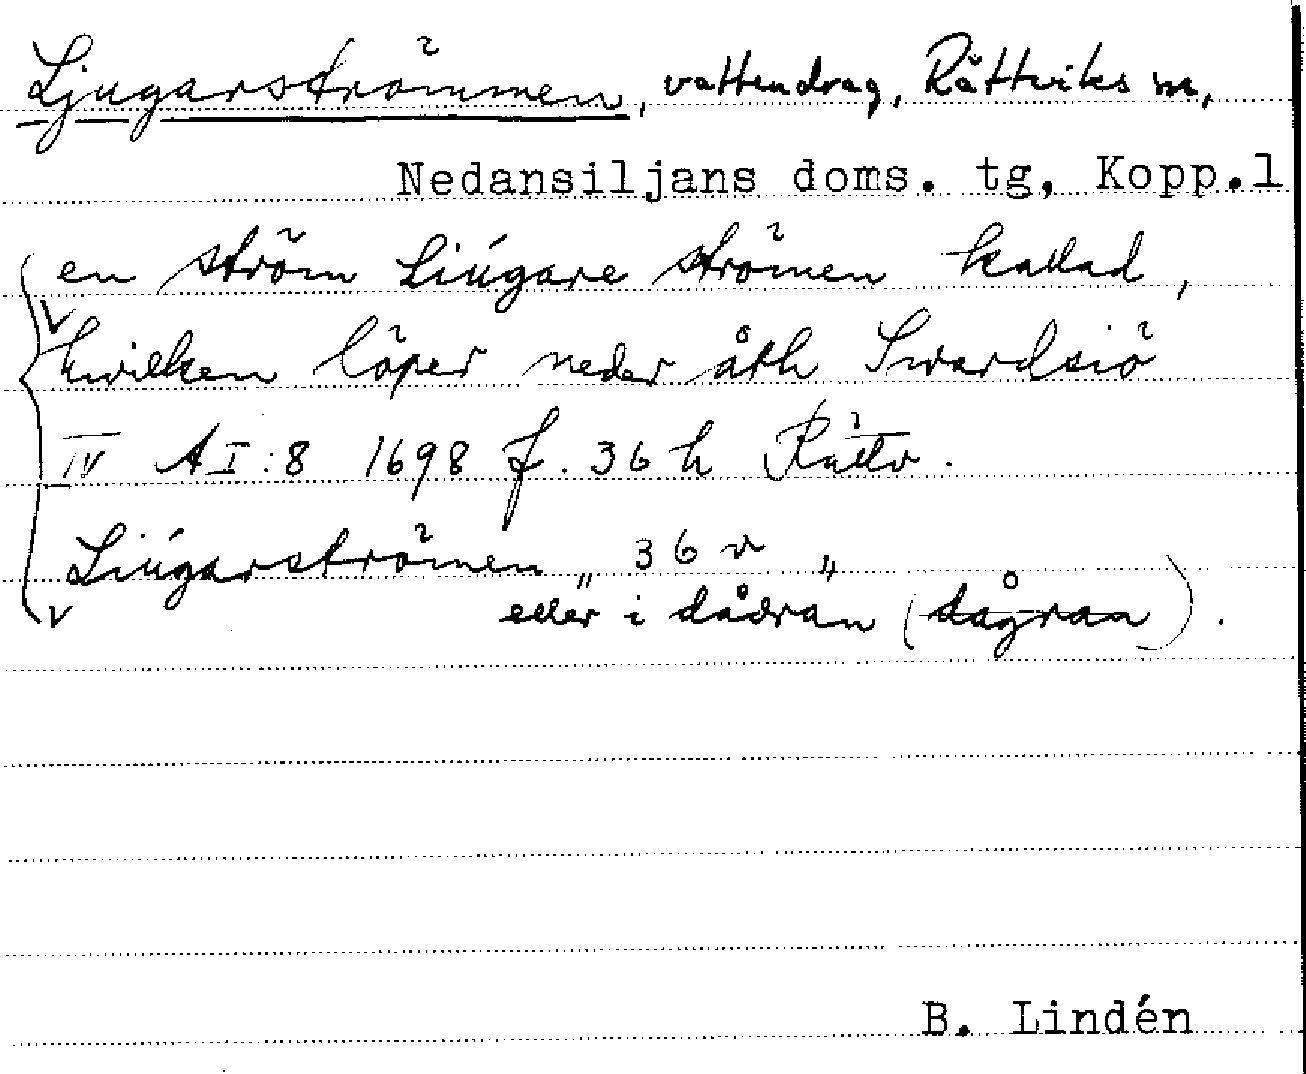 Ljugarströmmen, vattendrag, Rättviks sn,
Nedansiljans doms. tg, Kopp.l
en ström Liúgare strömen kallad,
hwilken löper neder åth Swardsiö
IV AI:8 1698 f. 36 h Rättv.
Liúgarströmen " 36 v "
eller i dådran (dågran).
B. Lindén